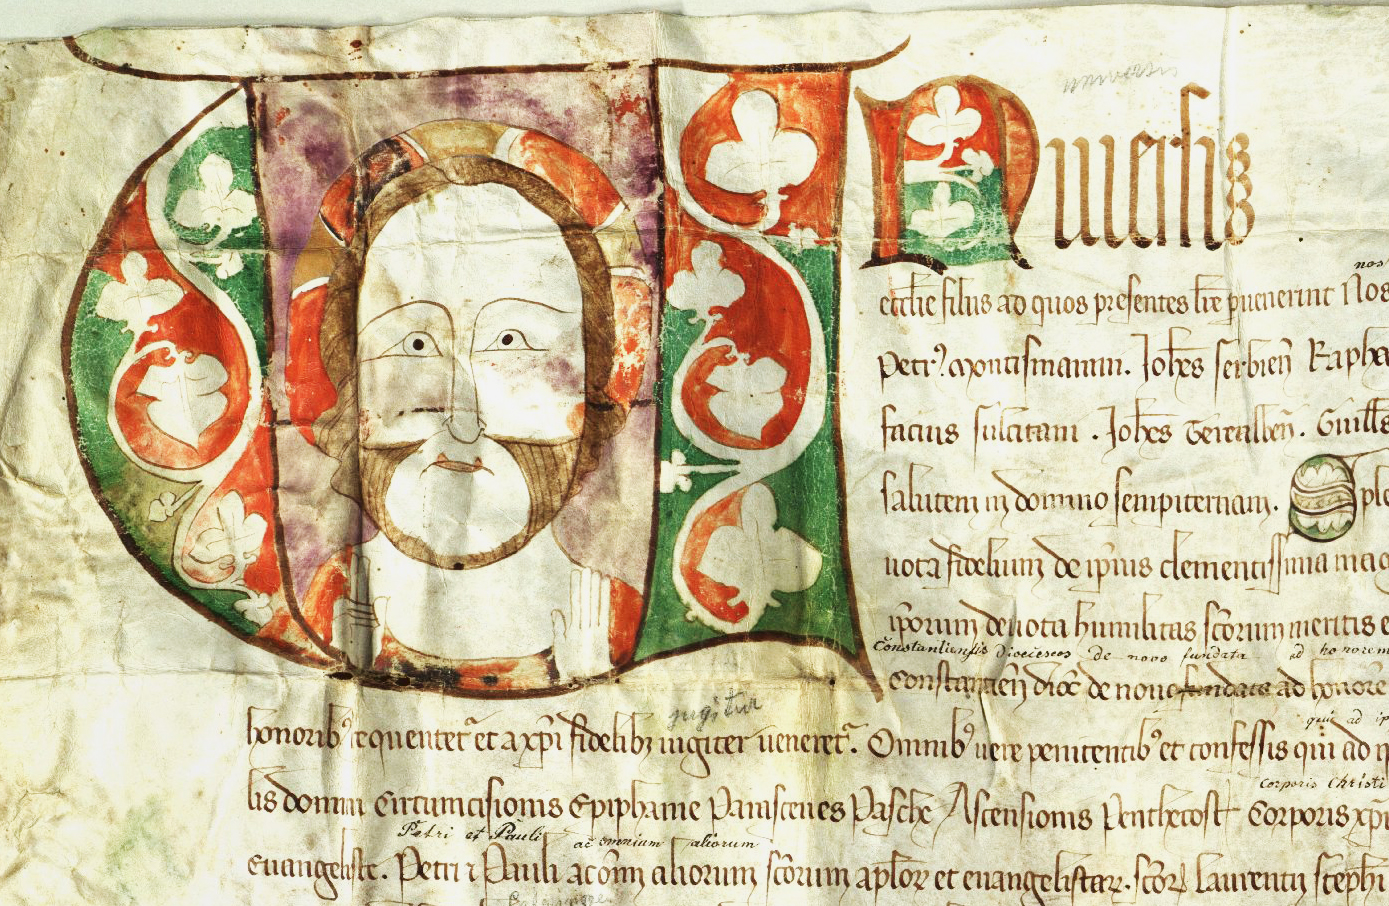 universis
UNiuersis
nos
eccl'ie filiis ad quos presentes lr̄e puenerint Nos
Petr' Montismarani. Joh̄es serbien̄ Rapha
facius sulcitani. Joh̄es Terralben̄. Guill's
salutem in domino sempiternam. Sple
uota fidelium de ip̄ius clementissima maie
ip̄orum deuota humilitas sc̄orum meritis
Constantiensis dioeceseos de novo fundata ad honorem
Constancien̄ dioc̄ de nouo fundata ad honore
jugitur
honorib' et a xp̄i fidelib; iugiter ueneret̄. Omnib' uere penitentib' et confessis qui ad
Corporis Christi
domini Circumcisionis Epiphanie Parasceues Pasche Ascensionis Penthecost Corporis xp̄i
Petri et Pauli ac omnium aliorum
Euangeliste. Petri ⁊ Pauli ac om̄ aliorum sc̄orum ap̄lor̄ et euangelistar̄. sc̄or̄ Laurentii stephi